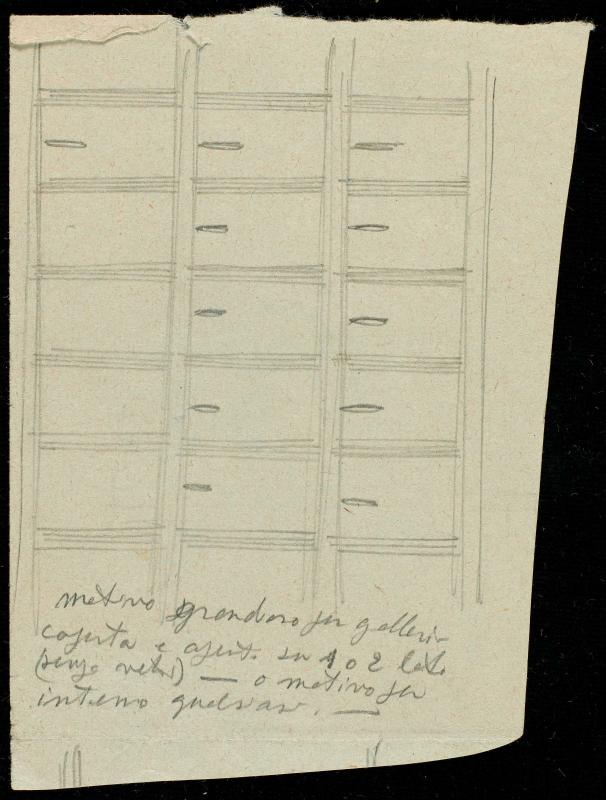 motivo grandioso per galleria
coperta e apert. su 1 o 2 lati
(senza vetri) — o motivo per
interno qualsiasi. —